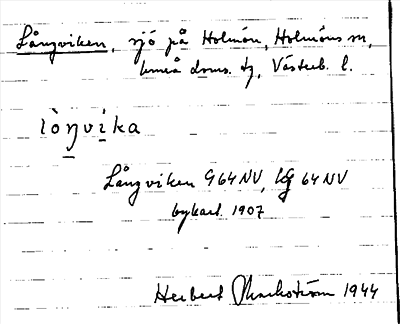 Långviken, sjö på Holmön, Holmöns sn,
Umeå doms. tg, Västerb. l.
lò̱ŋvi̱ka
Långviken G 64 NV, hg 64 NV
bykart. 1907
Herbert Markström 1944